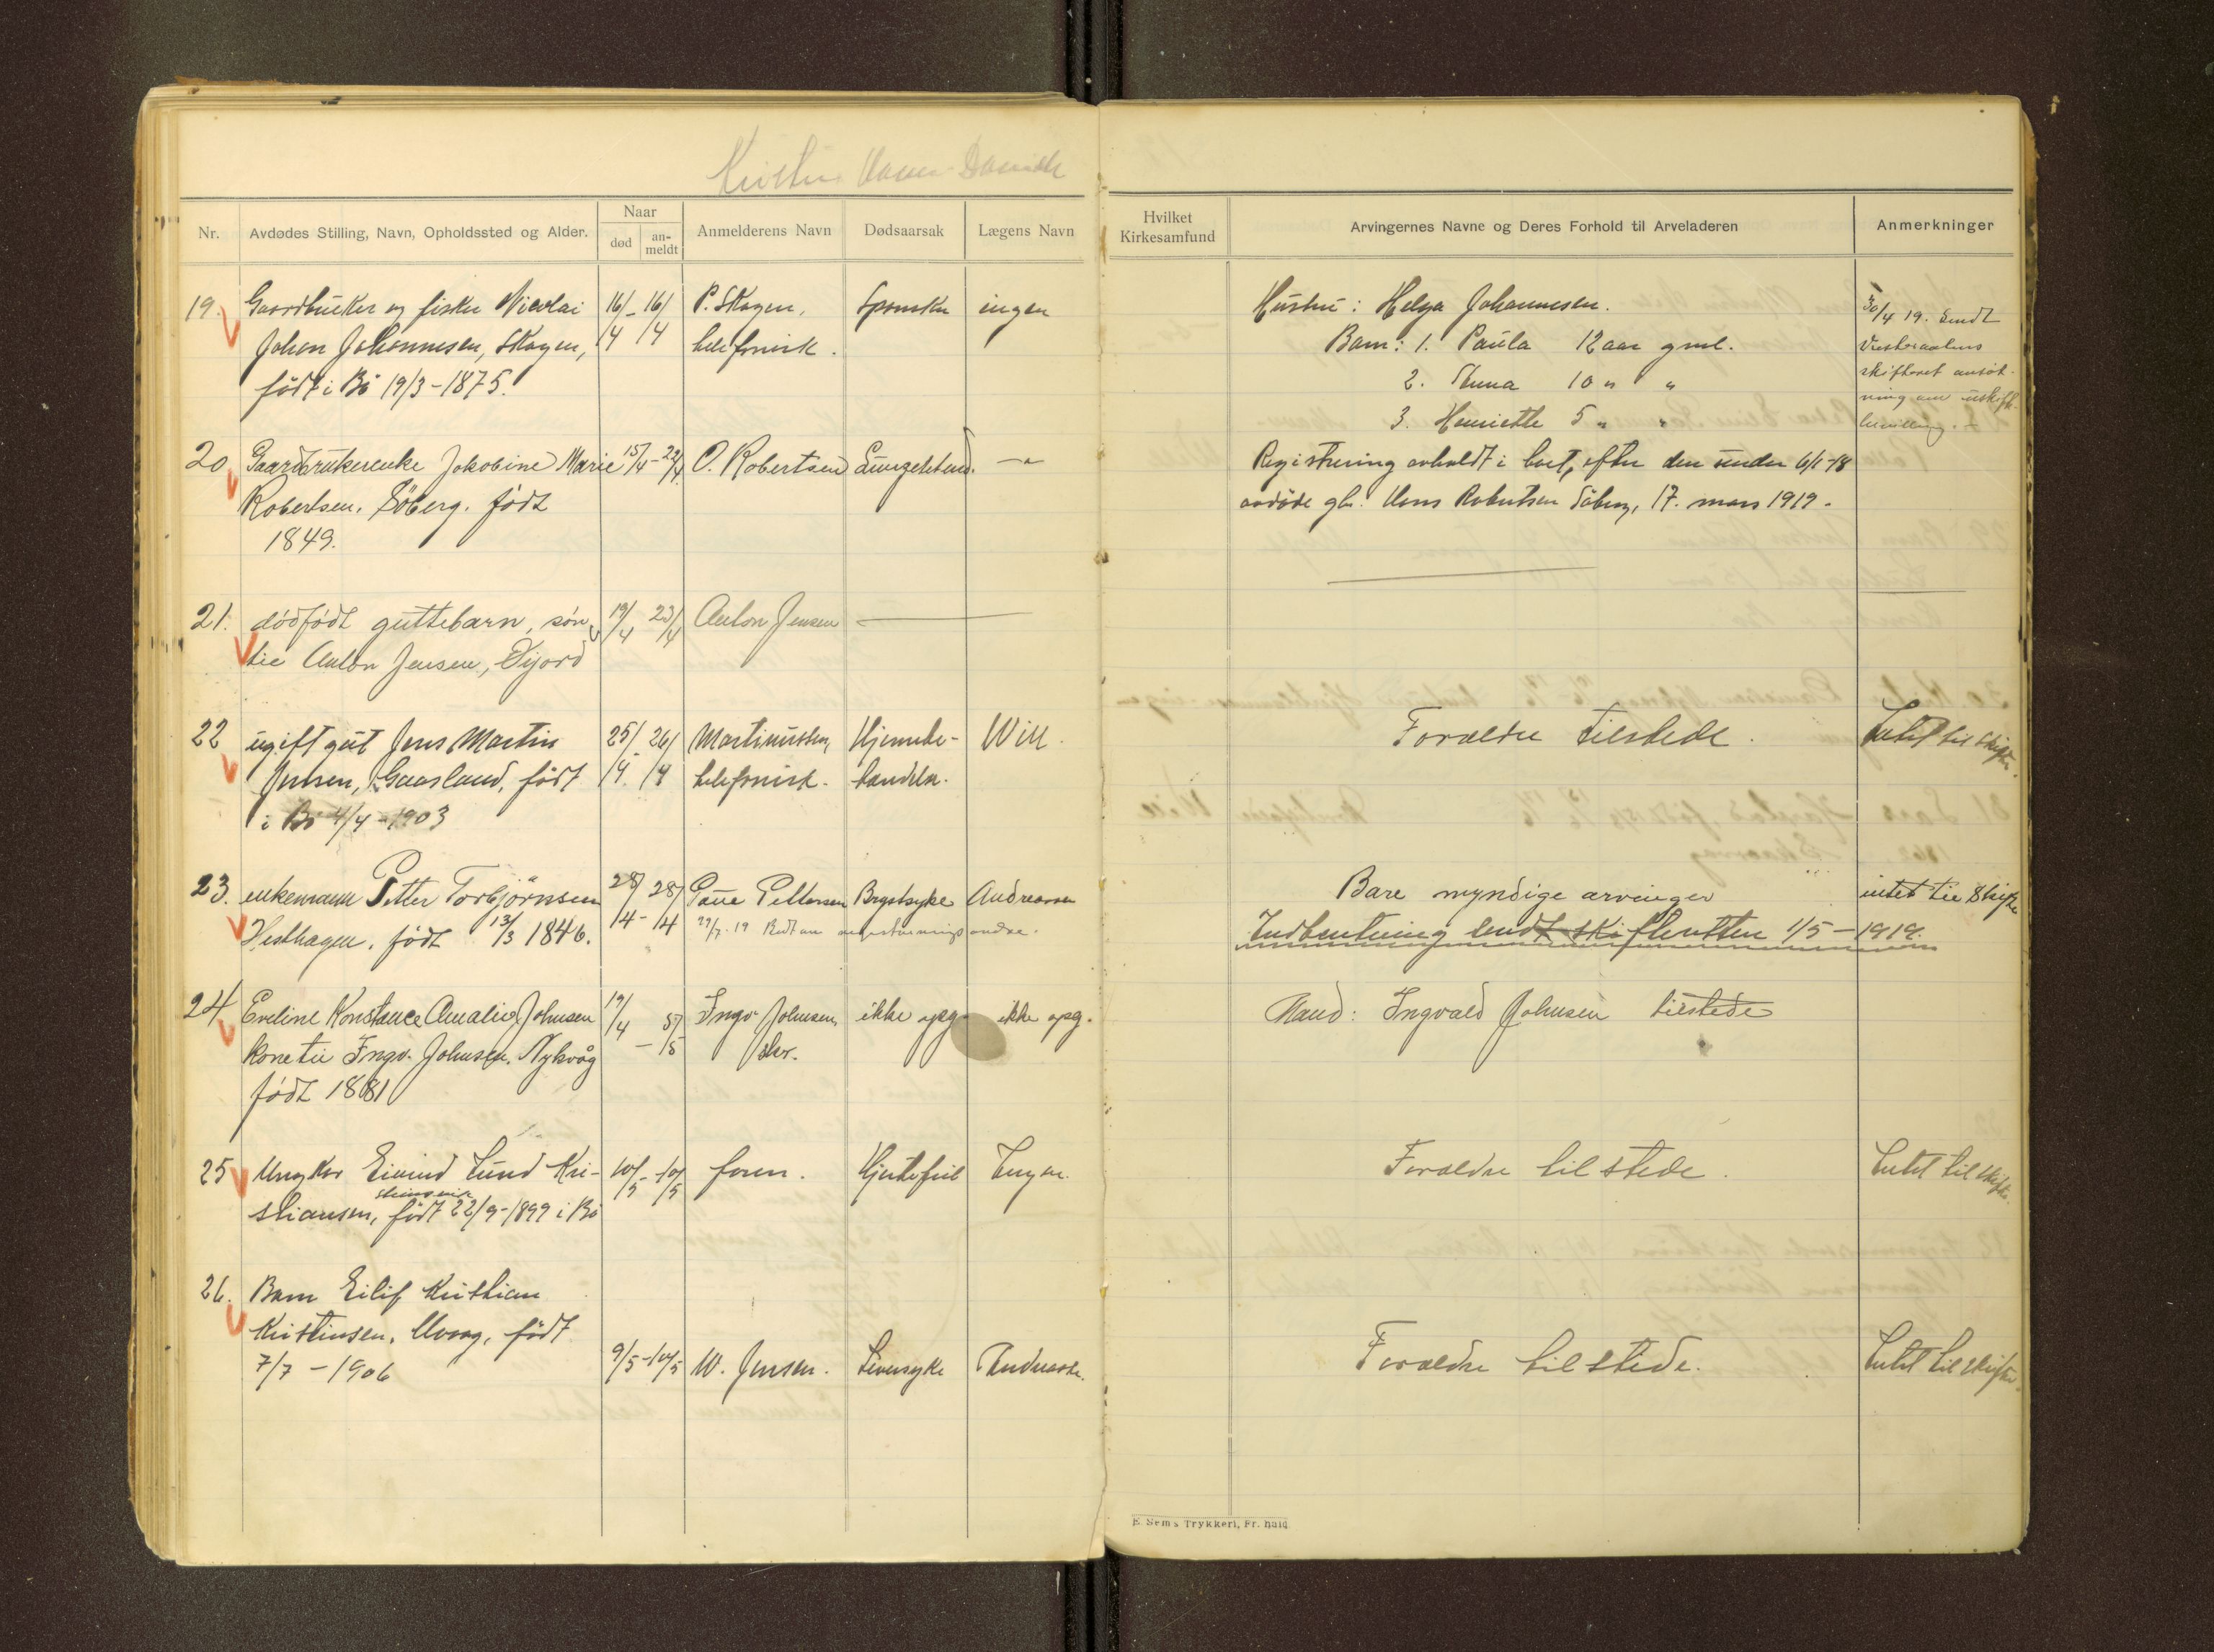 Nr.
Avdødes Stilling, Navn, Opholdssted og Alder.
Naar
død
an-
meldt
Anmelderens Navn
Dødsaarsak
Lægens Navn
Hvilket
Kirkesamfund
Arvingernes Navne og Deres Forhold til Arveladeren
Anmerkninger
19. Gaardbruker og fisker Nicolai 16/ - 16/ P. Skagen, Spanske ingen
Johan Johannesen, Skagen, /4 /4 telefonisk.
født i Bø 19/3-1875.
Hustru: Helga Johannesen.
Barn: 1. Paula 12 aar gml.
2. Anna 10 " "
3. Henriette 5 " "
30/4 19. Sendt
Vesteraalens
skifteret ansøk-
ning om uskifte-
bevilling.
20 Gaardbrukerenke Jakobine Marie 15/4 - 22/4 O. Robertsen Lungebetend. — " —
Robertsen, Søberg. født
1849.
Registrering avholdt i boet, efter den under 6/1-18
avdøde gbr. Hans Robertsen Søberg, 17. mars 1919.
21. dødfødt guttebarn, søn 19/4 23/4 Anton Jensen
til Anton Jensen, Øijord
22 ugift gut Jens Martin 25/ - 26/ Martinussen, Hjernebe- Will.
Jensen, Gaasland, født /4. /4 telefonisk. tændelse.
i Bø 4/4-1903
Forældre tilstede.
Intet til skifte.
23. enkemann Petter Torbjørnssen 28/ 28/ Paul Pettersen Brystsyke Andreassen
Vesthagen. født 13/3 1846. /4 - /4 29/7-19 Bedt om
Bare myndige arvinger
intet til Skifte
Indberetning sendt skifteretten 1/5-1919.
24 Eveline Konstance Amalie Johnsen 19/4 - 5/5 Ingv. Johnsen, ikke opg. ikke opg.
kone til Ingv. Johnsen. Nykvåg skr.
født 1881
Mand: Ingvald Johnsen tilstede
25 Ungkar Eivind Lund Kri- 10/5 - 10/5 faren. Hjertefeil Ingen.
stiansen, født 22/9-1899 i Bø
Forældre tilstede.
Intet til skifte.
26. Barn Eilif Kristian
Kristensen, Uvaag, født
7/7-1906 9/5-10/5 W. Jensen. Leversyke Andreasse.
Forældre tilstede.
Intet til skifte.
E. Sem's Trykkeri, Fr. hald